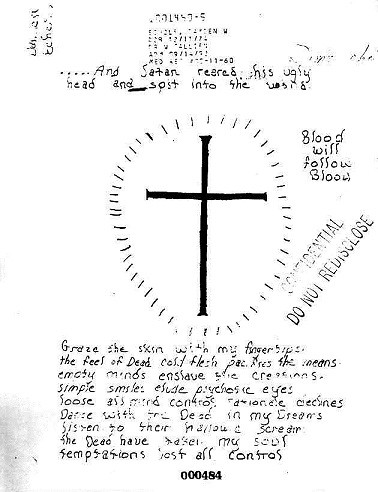 001440-5
..... And Satan reared his ugly
head and spit into the wind.
Blood
will
follow
Blood
CONFIDENTIAL
DO NOT REDISCLOSE
Graze the skin with my fingertips.
the feel of Dead cold flesh pacifies the means.
empty minds enslave the creations.
simple smiles elude psychotic eyes
loose all mind control rationale declines
Dance with the Dead in my Dreams
listen to their hallowed screams
the Dead have taken my soul
temptations lost all control
000484